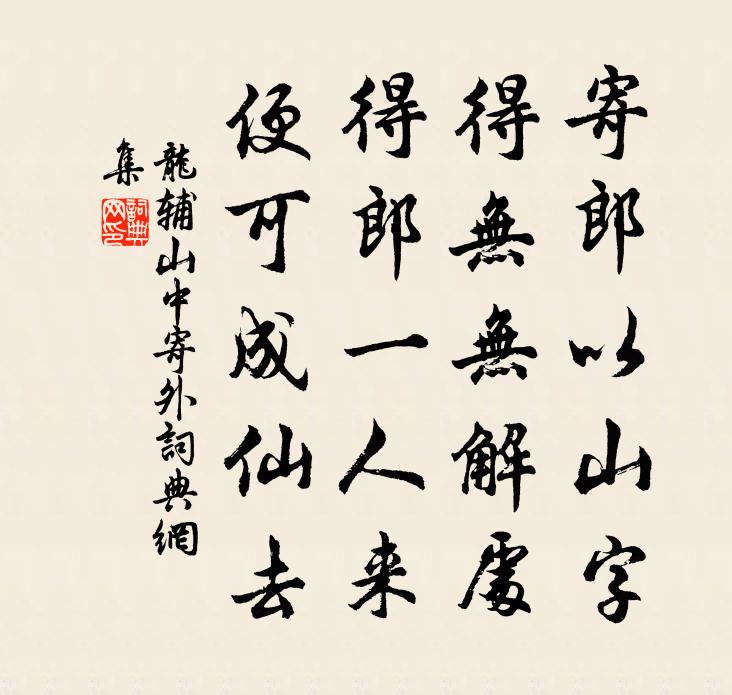 寄郎以山字
得無無解處
得郎一人来
便可成仙去
龍辅山中寄外詞典網
集
詞典
网印